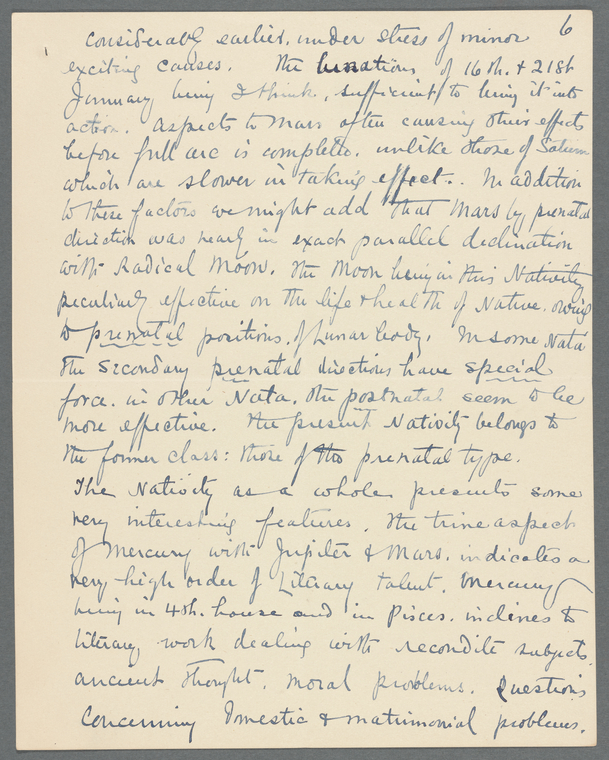 6
considerably earlier, under stress of minor
exciting causes. The lunations of 16th. & 21st
January being I think, sufficient to bring it into
action. Aspects to Mars often causing their effects
before full arc is complete. unlike those of Saturn
which are slower in taking effect. In addition
to these factors we might add that Mars by prenatal
direction was nearly in exact parallel declination
with Radical Moon. The Moon being in this Nativity
peculiarly effective on the life & health of Native. owing
to prenatal positions of Lunar body. In some Nata
the secondary prenatal directions have special
force. in other Nata. the postnatal seem to be
more effective. The present Nativity belongs to
the former class: those of the prenatal type.
The Nativity as a whole presents some
very interesting features. The trine aspect
of Mercury with Jupiter & Mars. indicates a
very high order of Literary talent. Mercury
being in 4th. house and in Pisces. inclines to
literary work dealing with recondite subjects.
ancient thought. moral problems. Questions
concerning Domestic & matrimonial problems.